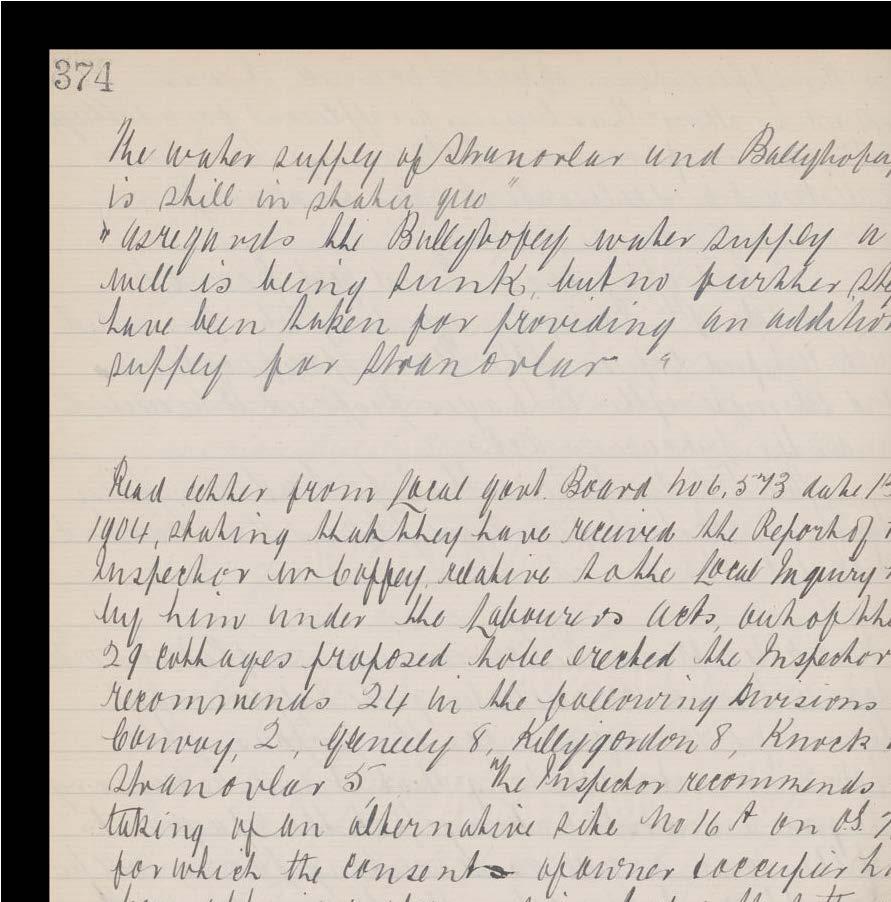 374
The water supply of Stranorlar and Ballybofey
is still in statu quo"
" as regards the Ballybofey water supply a
well is being sunk, but no further ste
have been taken for providing an addition
supply for Stranorlar "
Read letter from Local Govt. Board No 6,573 date 13
1904, stating that they have received the Report of
Inspector Mr Coffey, relative to the Local Inquiry
by him under the Labourers Acts, out of the
29 cottages proposed to be erected the Inspector
recommends 24 in the following Divisions
Convoy, 2, Gleneely 8, Killygordon 8, Knock
Stranorlar 5 The Inspector recommends
taking of an alternative site No 16 A on O.S.
for which the consent of owner & occupier h